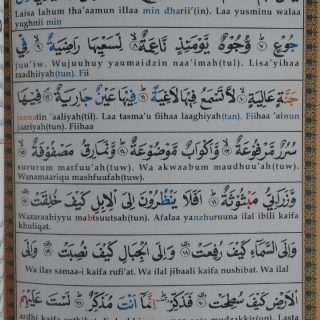 Laisa lahum tha'aamun illaa min dharii'(in). Laa yusminu walaa
yughnii min
جُوْعٍ ﴿٧﴾ وُجُوْهٌ يَوْمَئِذٍ نَّاعِمَةٌ ﴿٨﴾ لِّسَعْيِهَا رَاضِيَةٌ ﴿٩﴾ فِيْ
juu'iw. Wujuuhuy yaumaidzin naa'imah(tul). Lisa'yihaa
raadhiiyah(tun). Fii
جَنَّةٍ عَالِيَةٍ ﴿١٠﴾ لَّا تَسْمَعُ فِيْهَا لَاغِيَةً ﴿١١﴾ فِيْهَا عَيْنٌ جَارِيَةٌ ﴿١٢﴾ فِيْهَا
jannatin 'aaliyah(til). Laa tasma'u fiihaa laaghiyah(tan). Fiihaa 'ainun
jaariyah(tun). Fiihaa
سُرُرٌ مَّرْفُوْعَةٌ ﴿١٣﴾ وَّاَكْوَابٌ مَّوْضُوْعَةٌ ﴿١٤﴾ وَّنَمَارِقُ مَصْفُوْفَةٌ ﴿١٥﴾
sururum marfuu'ah(tuw). Wa akwaabum maudhuu'ah(tuw).
Wanamaariqu mashfuufah(tuw).
وَّزَرَابِيُّ مَبْثُوْثَةٌ ﴿١٦﴾ اَفَلَا يَنْظُرُوْنَ اِلَى الْاِبِلِ كَيْفَ خُلِقَتْ ﴿١٧﴾
Wazaraabiyyu mabtsuutsah(tun). Afalaa yanzhuruuna ilal ibili kaifa
khuliqat.
وَاِلَى السَّمَاۤءِ كَيْفَ رُفِعَتْ ﴿١٨﴾ وَاِلَى الْجِبَالِ كَيْفَ نُصِبَتْ ﴿١٩﴾ وَاِلَى
Wa ilas samaa-i kaifa rufi'at. Wa ilal jibaali kaifa nushibat. Wa ilal
الْاَرْضِ كَيْفَ سُطِحَتْ ﴿٢٠﴾ فَذَكِّرْ اِنَّمَآ اَنْتَ مُذَكِّرٌ ﴿٢١﴾ لَسْتَ عَلَيْهِمْ
ardhi kaifa